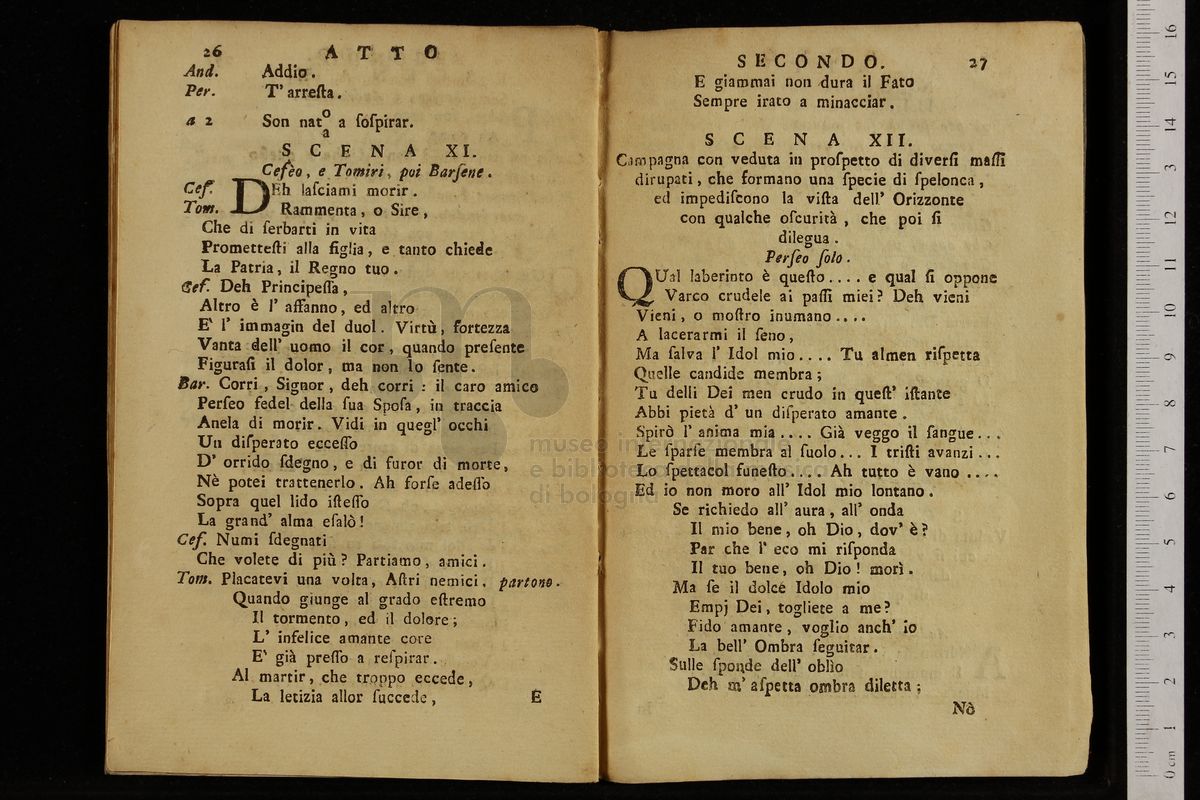 26 A T T O
And. Addio.
Per. T' arreſta.
a 2 Son nat o/a a ſoſpirar.
S C E N A XI.
Cefèo, e Tomiri, poi Barſene.
Cef. DEh laſciami morir.
Tom. Rammenta, o Sire,
Che di ſerbarti in vita
Prometteſti alla figlia, e tanto chiede
La Patria, il Regno tuo.
Cef. Deh Principeſſa,
Altro è l' affanno, ed altro
E' l' immagin del duol. Virtù, fortezza
Vanta dell' uomo il cor, quando preſente
Figuraſi il dolor, ma non lo ſente.
Bar. Corri, Signor, deh corri: il caro amico
Perſeo fedel della ſua Spoſa, in traccia
Anela di morir. Vidi in quegl' occhi
Un diſperato ecceſſo
D' orrido ſdegno, e di furor di morte,
Nè potei trattenerlo. Ah forſe adeſſo
Sopra quel lido iſteſſo
La grand' alma eſalò!
Cef. Numi ſdegnati
Che volete di più? Partiamo, amici.
Tom. Placatevi una volta, Aſtri nemici. partono.
Quando giunge al grado eſtremo
Il tormento, ed il dolore;
L' infelice amante core
E' già preſſo a reſpirar.
Al martir, che troppo eccede,
La letizia allor ſuccede,
E
SECONDO. 27
E giammai non dura il Fato
Sempre irato a minacciar.
S C E N A XII.
Campagna con veduta in proſpetto di diverſi maſſi
dirupati, che formano una ſpecie di ſpelonca,
ed impediſcono la viſta dell' Orizzonte
con qualche oſcurità, che poi ſi
dilegua.
Perſeo ſolo.
QUal laberinto è queſto.... e qual ſi oppone
Varco crudele ai paſſi miei? Deh vieni
Vieni, o moſtro inumano....
A lacerarmi il ſeno,
Ma ſalva l' Idol mio.... Tu almen riſpetta
Quelle candide membra;
Tu delli Dei men crudo in queſt' iſtante
Abbi pietà d' un diſperato amante.
Spirò l' anima mia.... Già veggo il ſangue...
Le ſparſe membra al ſuolo... I triſti avanzi...
Lo ſpettacol funeſto.... Ah tutto è vano....
Ed io non moro all' Idol mio lontano.
Se richiedo all' aura, all' onda
Il mio bene, oh Dio, dov' è?
Par che l' eco mi riſponda
Il tuo bene, oh Dio! morì.
Ma ſe il dolce Idolo mio
Empj Dei, togliete a me?
Fido amante, voglio anch' io
La bell' Ombra ſeguitar.
Sulle ſponde dell' oblìo
Deh m' aſpetta ombra diletta;
Nò
museo internazionale
e biblioteca della musica
di bologna
0 cm 1 2 3 4 5 6 7 8 9 10 11 12 13 14 15 16